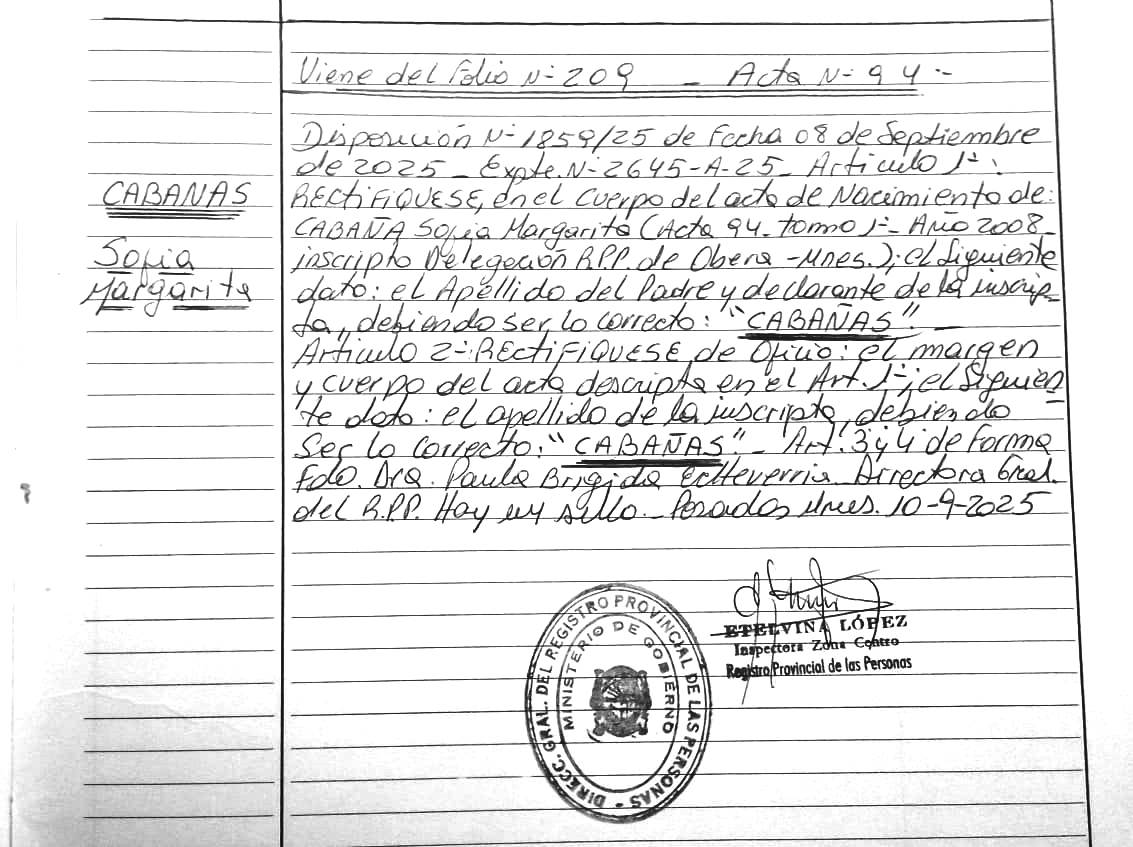 Viene del Folio N- 209 _ Acta N- 94.-
Disposición N- 1859/25 de Fecha 08 de Septiembre
de 2025 _ Expte. N- 2645-A-25_ Articulo 1-:
CABANAS
RECTIFIQUESE, en el Cuerpo del acta de Nacimiento de:
CABAÑA Sofia Margarita (Acta 94_ tomo 1-_ Año 2008_
Sofia
inscripta Delegación R.P.P. de Obera -Mnes.); el siguiente
Margarita
dato: el Apellido del Padre y declarante de la inscrip-
ta, debiendo ser lo correcto: "CABAÑAS". _
Articulo 2-: RECTIFIQUESE de Oficio: el margen
y cuerpo del acta descripta en el Art. 1-; el Siguien
te dato: el apellido de la inscripta, debiendo
Ser lo correcto: "CABAÑAS". _ Art. 3 y 4 de Forma
Fdo. Dra. Paula Brigida Echeverria Directora Gral.
del R.P.P. Hay un sello._ Posadas Mnes. 10-9-2025
ETELVINA LÓPEZ
Inspectora Zona Centro
Registro Provincial de las Personas
DIRECC. GRAL. DEL REGISTRO PROVINCIAL DE LAS PERSONAS -
MINISTERIO DE GOBIERNO